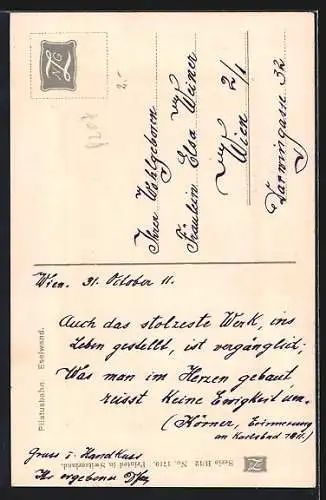 NZG
2.-
Ihrer Wohlgeboren
Fräulein Elsa Weiner
Wien 2/1
Darwingasse 32
Wien. 31. October 11.
Auch das stolzeste Werk, ins
Leben gestellt, ist vergänglich;
Was man im Herzen gebaut
reisst keine Ewigkeit um.
(Körner, Erinnerung
an Karlsbad 1811.)
Gruss u. Handkuss
Ihr ergebener
Pilatusbahn. Eselwand.
Serie 11/12 No. 1710. Printed in Switzerland.